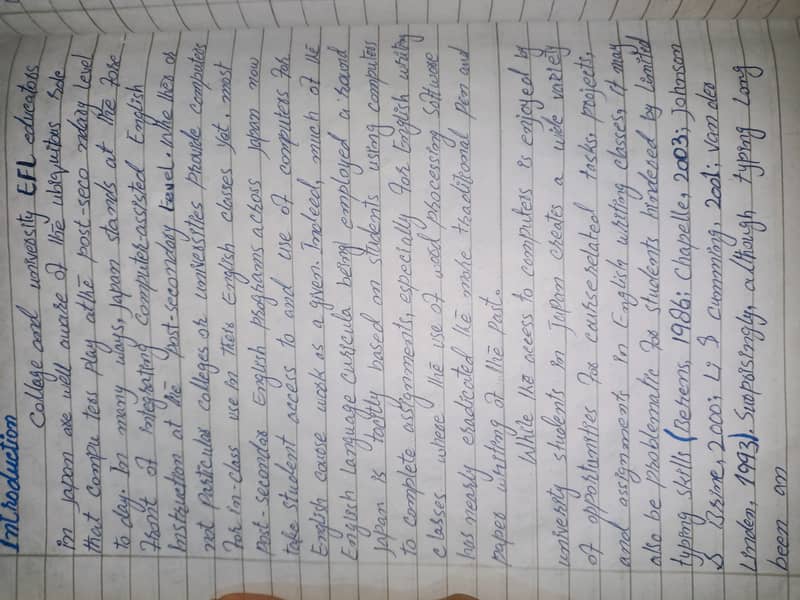 Introduction
Collage and university EFL educators
in Japan are well aware of the ubiquitous role
that compu ters play at the post-seco ndary level
to day. In many ways, Japan stands at the fore
front of integrating Computer-assisted English
Instruction at the post-secondary Level. Whe ther or
not Particular colleges or universities Provide computers
For in-class use in their English classes yet, most
post-secondar English programs across Japan now
take student access to and use of computers for
English course work as a given. Indeed, much of the
English language curricula being employed around
Japan is tacitly based on students using computers
to complete assignments, especially For English writing
classes where the use of word processing software
has nearly eradicated the more traditional Pen and
paper writing of the Past.
While the access to computers is enjoyed by
university students in Japan creates a wide variety
of opportunities for course related tasks, projects,
and assignments in English writing classes, it may
also be problematic for students hindered by limited
typing skills (Berens, 1986; Chapelle, 2003; Johnson
& Brine, 2000; Li & Cumming, 2001; Van der
Linden, 1993). Surprisingly, although typing Long
been an